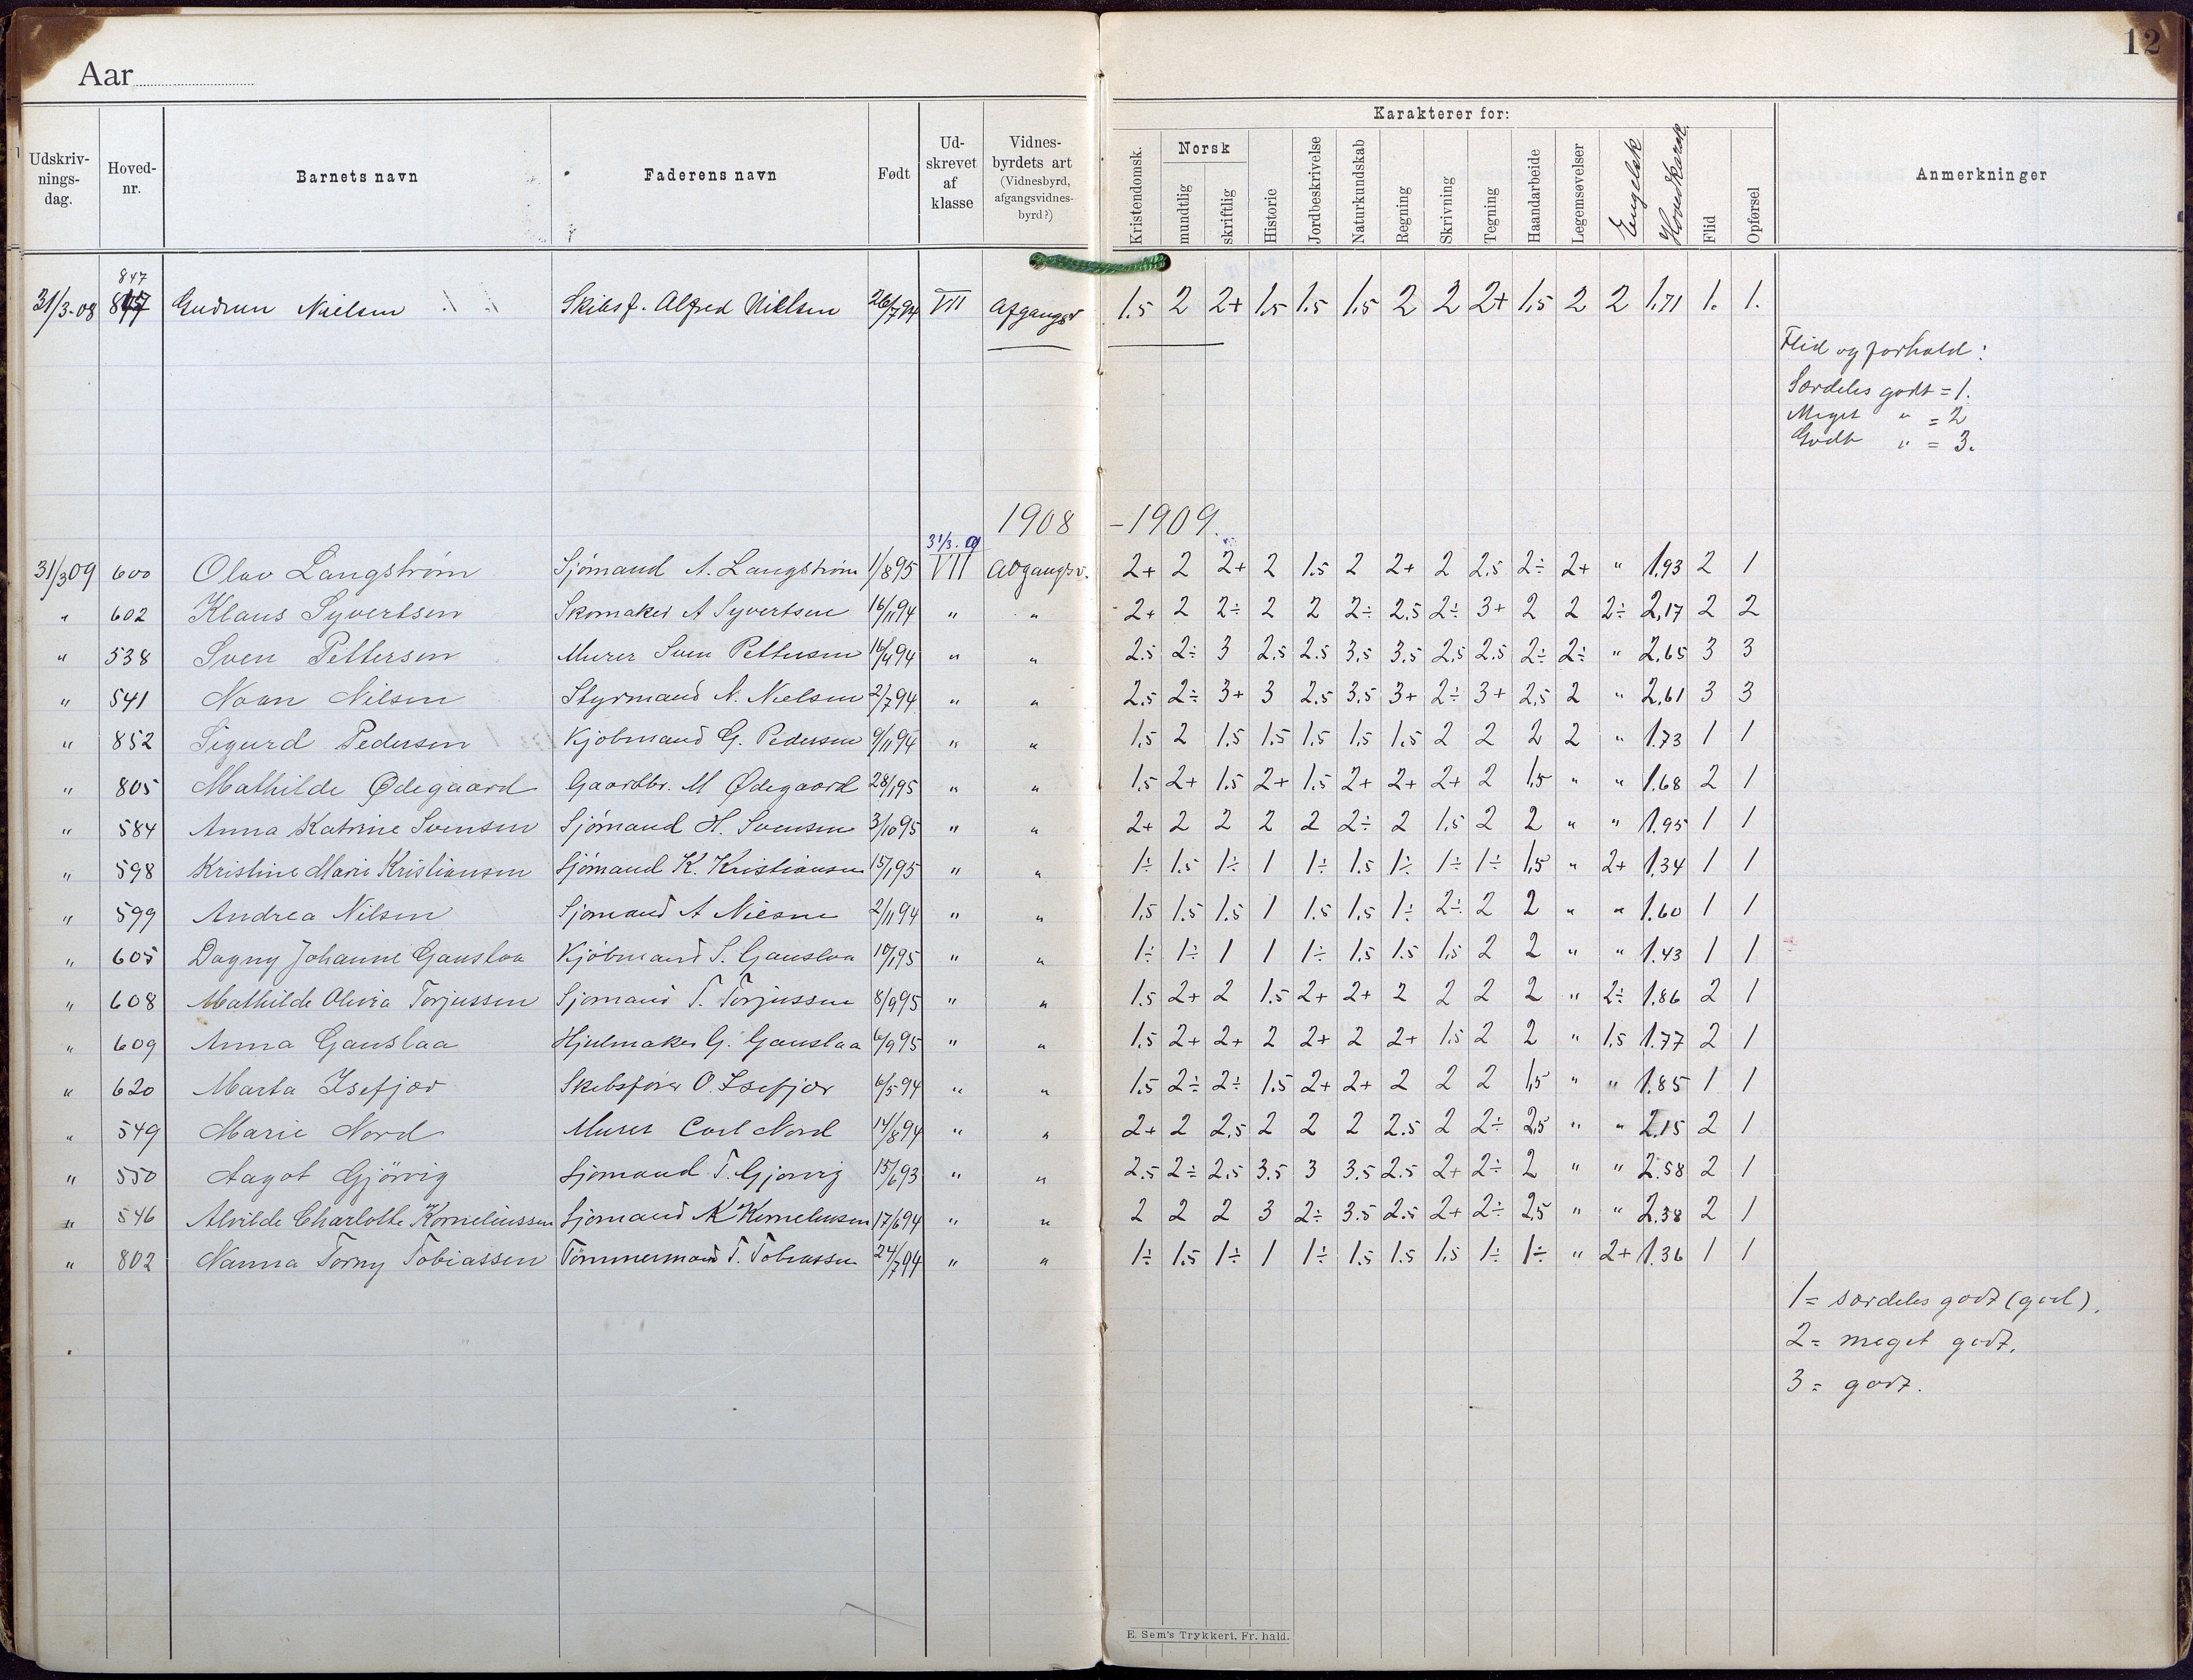 12
Aar
Karakterer for:
Udskriv-nings-dag. Hoved-nr. Barnets navn Faderens navn Født Ud-skrevet af klasse Vidnes-byrdets art (Vidnesbyrd, afgangsvidnes-byrd?) Kristendomsk. Norsk mundtlig skriftlig Historie Jordbeskrivelse Naturkundskab Regning Skrivning Tegning Haandarbeide Legemsøvelser Engelsk Hovedkarak. Flid Opførsel Anmerkninger
847
31/3-08 Gudrun Nielsen Skibsf. Alfred Nielsen 26/7 94 VII Afgangsv 1.5 2 2+ 1.5 1.5 1.5 2 2 2+ 1,5 2 2 1,71 1. 1.
Flid og forhold:
Særdeles godt = 1.
Meget " = 2
Godt " = 3.
1908 - 1909.
31/3. 09
31/3 09 600 Olav Langstrøm Sjömand A. Langström 1/8 95 VII Avgangsv. 2+ 2 2+ 2 1.5 2 2+ 2 2,5 2÷ 2+ " 1,93 2 1
" 602 Klaus Syvertsen Skomaker A Syvertsen 16/11 94 " " 2+ 2 2÷ 2 2 2÷ 2,5 2÷ 3+ 2 2 2÷ 2,17 2 2
" 538 Sven Pettersen Murer Sven Pettersen 16/4 94 " " 2.5 2÷ 3 2,5 2.5 3,5 3,5 2,5 2.5 2÷ 2÷ " 2,65 3 3
" 541 Noan Nilsen Styrmand N. Nielsen 2/7 94 " " 2,5 2÷ 3+ 3 2,5 3,5 3+ 2÷ 3+ 2,5 2 " 2,61 3 3
" 852 Sigurd Pedersen Kjöbmand G. Pedersen 9/11 94 " " 1,5 2 1,5 1.5 1,5 1,5 1,5 2 2 2 2 " 1.73 1 1
" 805 Mathilde Ødegaard Gaardbr. M Ødegaard 28/1 95 " " 1,5 2+ 1.5 2+ 1.5 2+ 2+ 2+ 2 1,5 " " 1.68 2 1
" 584 Anna Katrine Svensen Sjömand H. Svensen 3/10 95 " " 2+ 2 2 2 2 2÷ 2 1,5 2 2 " " 1.95 1 1
" 598 Kristine Marie Kristiansen Sjömand K. Kristiansen 15/1 95 " " 1÷ 1.5 1÷ 1 1÷ 1.5 1÷ 1÷ 1÷ 1,5 " 2+ 1,34 1 1
" 599 Andrea Nilsen Sjömand A 2/11 94 " " 1,5 1.5 1.5 1 1.5 1,5 1÷ 2÷ 2 2 " " 1.60 1 1
" 605 Dagny Johanne Gauslaa Kjöbmand S. Gauslaa 10/1 95 " " 1÷ 1÷ 1 1 1÷ 1,5 1.5 1,5 2 2 " " 1.43 1 1
" 608 Mathilde Olivia Torjussen Sjömand T. Torjussen 8/9 95 " " 1.5 2+ 2 1.5 2+ 2+ 2 2 2 2 " 2÷ 1,86 2 1
" 609 Anna Gauslaa Hjulmaker G. Gauslaa 6/9 95 " " 1,5 2+ 2+ 2 2+ 2 2+ 1.5 2 2 " 1,5 1.77 2 1
" 620 Marta Isefjær Skibsfører O. Isefjær 6/5 94 " " 1.5 2÷ 2÷ 1.5 2+ 2+ 2 2 2 1,5 " " 1.85 1 1
" 549 Marie Nord Murer Carl Nord 14/8 94 " " 2+ 2 2,5 2 2 2 2.5 2 2÷ 2,5 " " 2,15 2 1
" 550 Aagot Gjörvig Sjömand T. Gjörvig 15/6 93 " " 2.5 2÷ 2,5 3.5 3 3.5 2.5 2+ 2÷ 2 " " 2.58 2 1
" 546 Alvilde Charlotte Korneliussen Sjömand K Korneliussen 17/6 94 " " 2 2 2 3 2÷ 3.5 2.5 2+ 2÷ 2,5 " " 2.38 2 1
" 802 Nanna Torny Tobiassen Tömmermand T. Tobiassen 24/7 94 " " 1÷ 1.5 1÷ 1 1÷ 1.5 1.5 1,5 1÷ 1÷ " 2+ 1.36 1 1
1 = særdeles godt (god).
2 = meget godt.
3 = godt.
E. Sem's Trykkeri, Fr. hald.